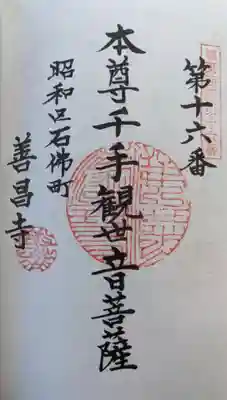 第十六番
本尊千手観世音菩薩
昭和区石佛町
善昌寺